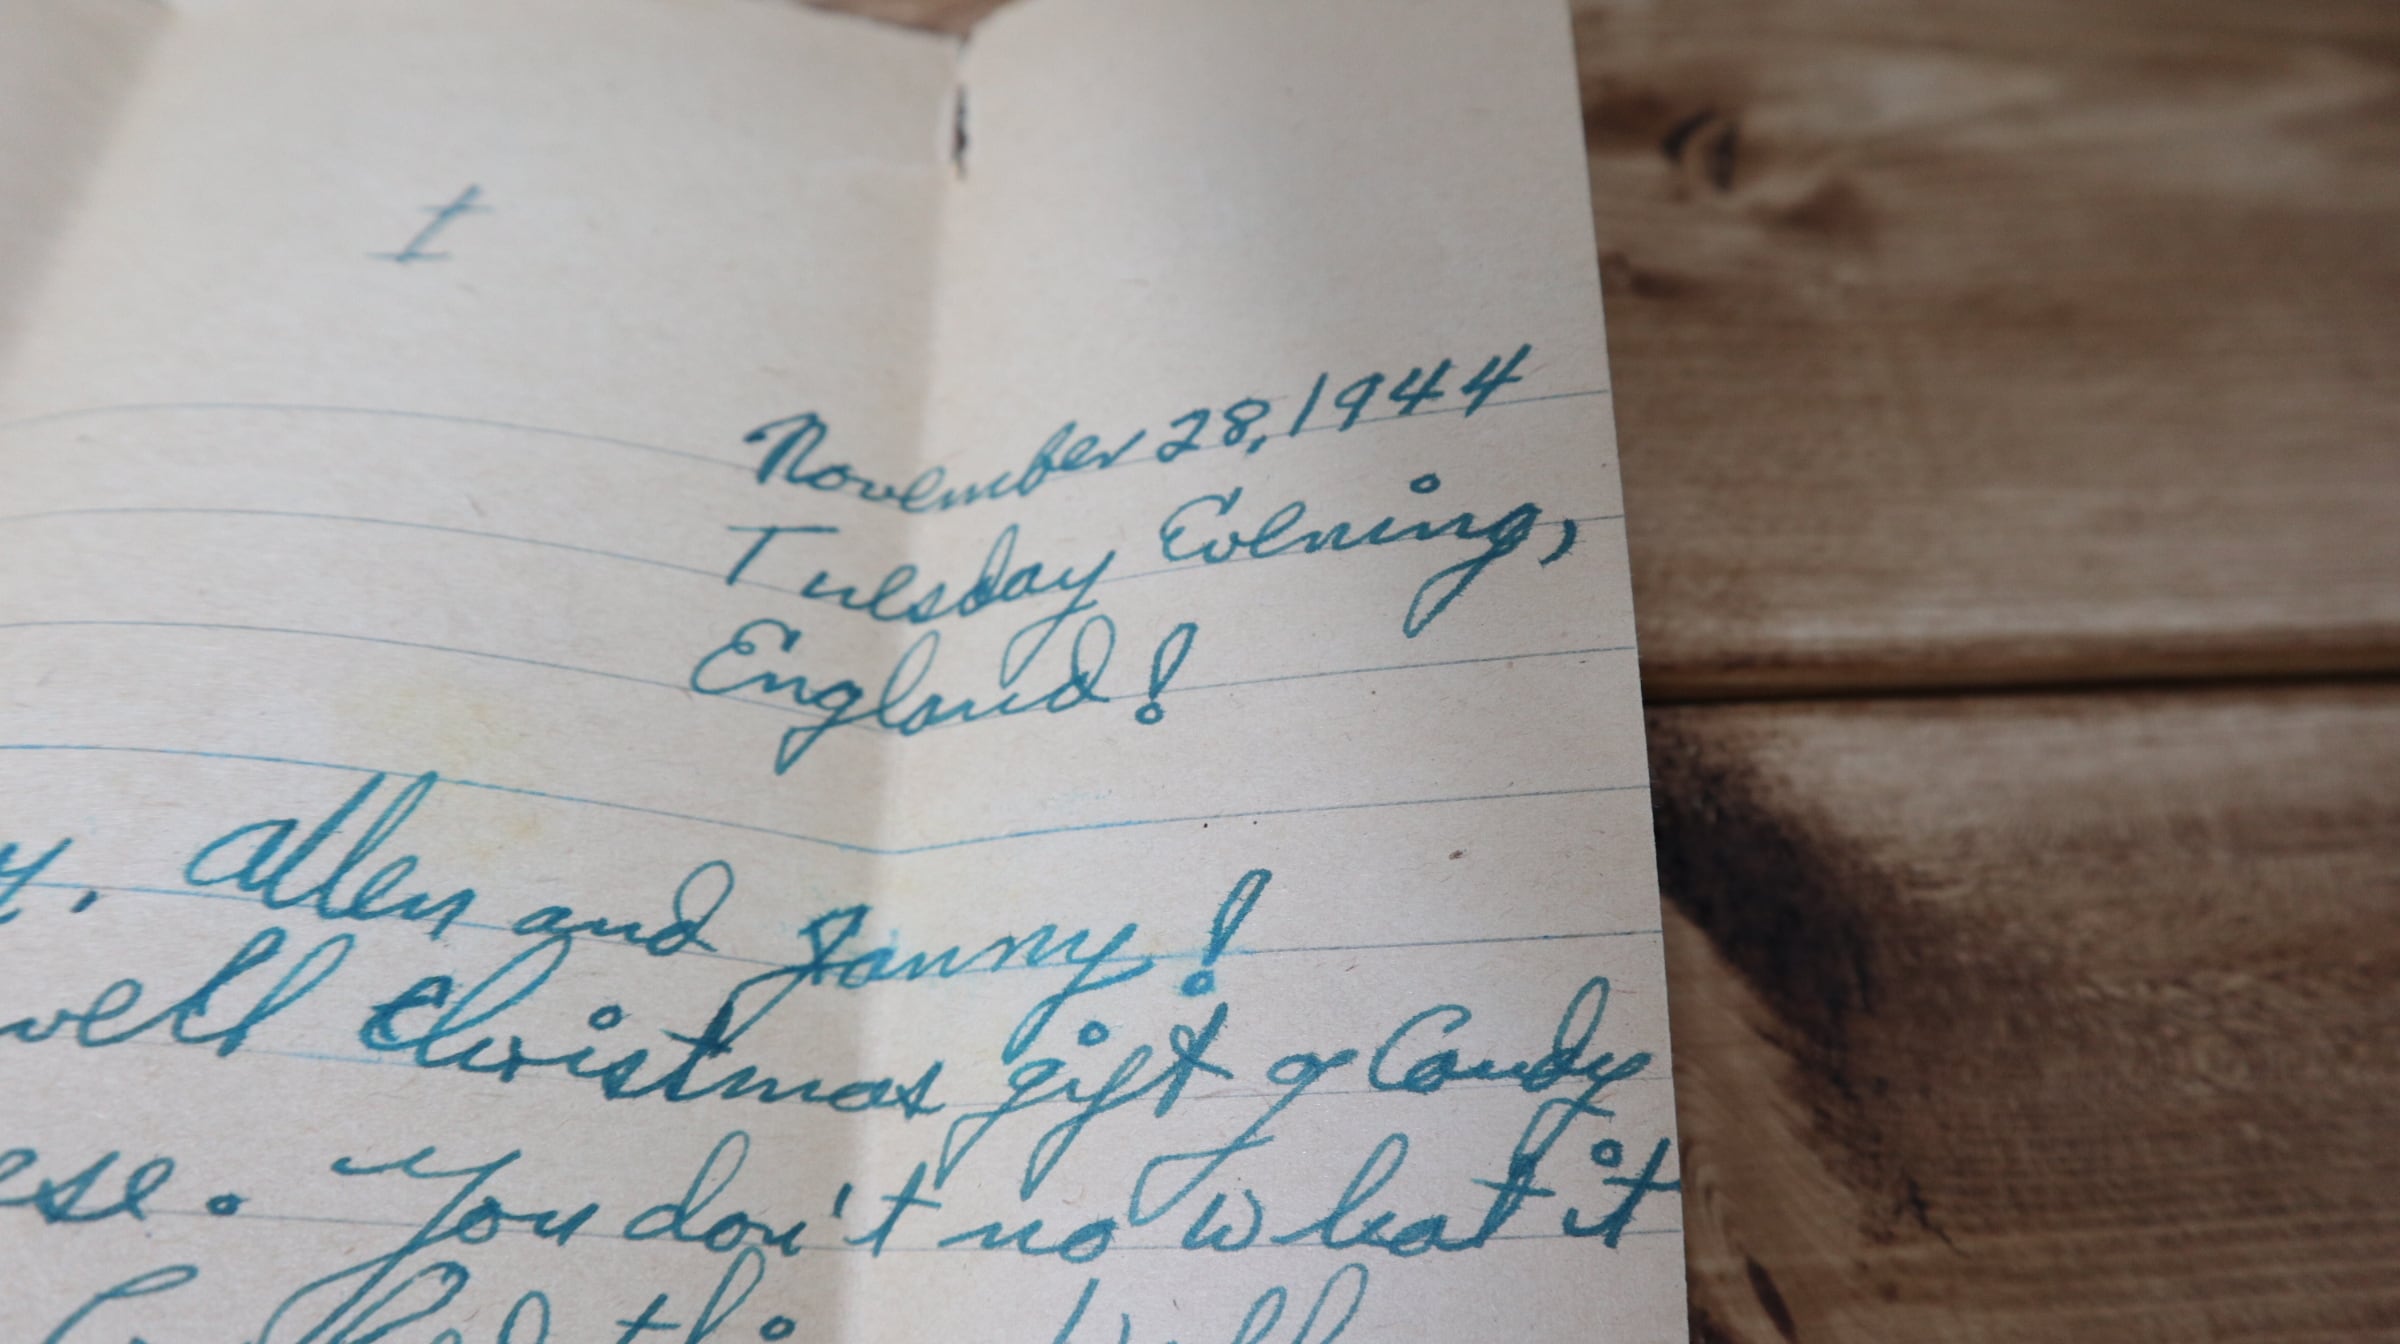 I
November 28, 1944
Tuesday Evening,
England!
y. Allen and Fanny!
well Christmas gift of Candy
ese. You don't no what it